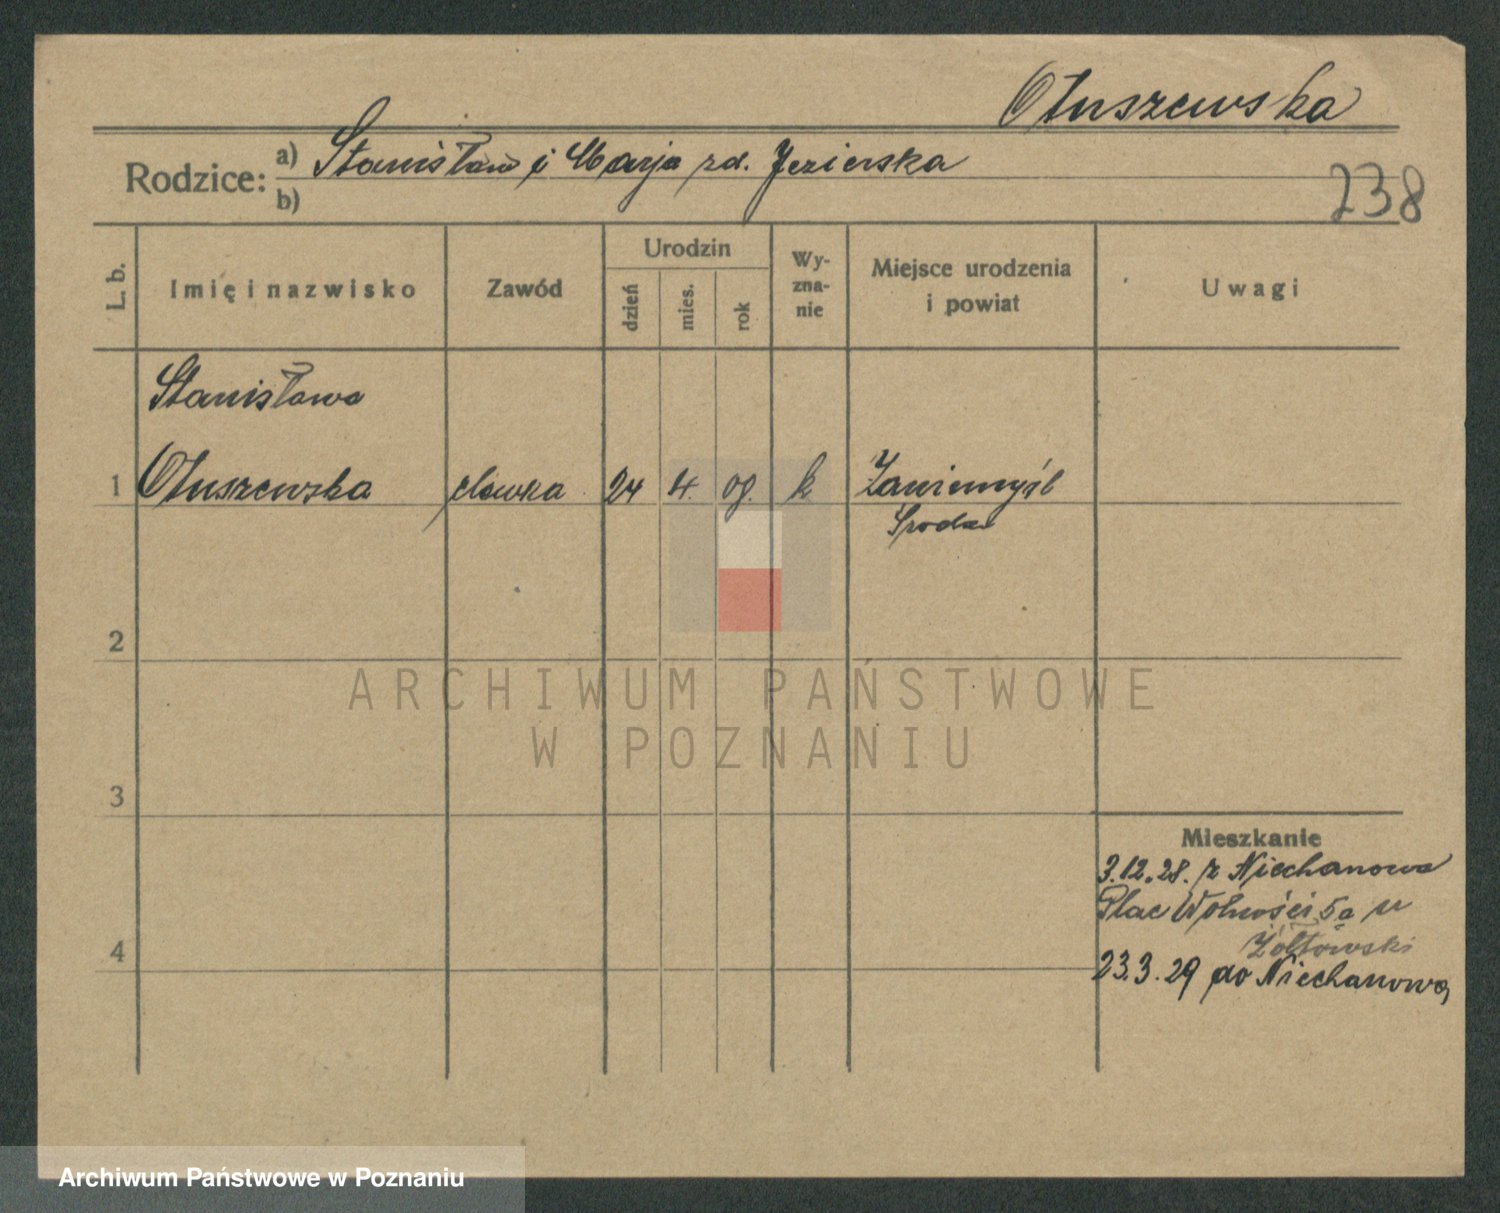 Otuszewska
Rodzice: a) Stanisław i Marja zd. Jezierska
b)
238
L. b.
Imię i nazwisko
Zawód
Urodzin
dzień
mies.
rok
Wy-
zna-
nie
Miejsce urodzenia
i powiat
Uwagi
Stanisława
1 Otuszewska 24 4. 09. k Zaniemyśl
Środa
2
3
4
Mieszkanie
3.12.28. z Niechanowa
Plac Wolności 5a u
Żółtowski
23.3.29 do Niechanowa
ARCHIWUM PAŃSTWOWE
W POZNANIU
Archiwum Państwowe w Poznaniu